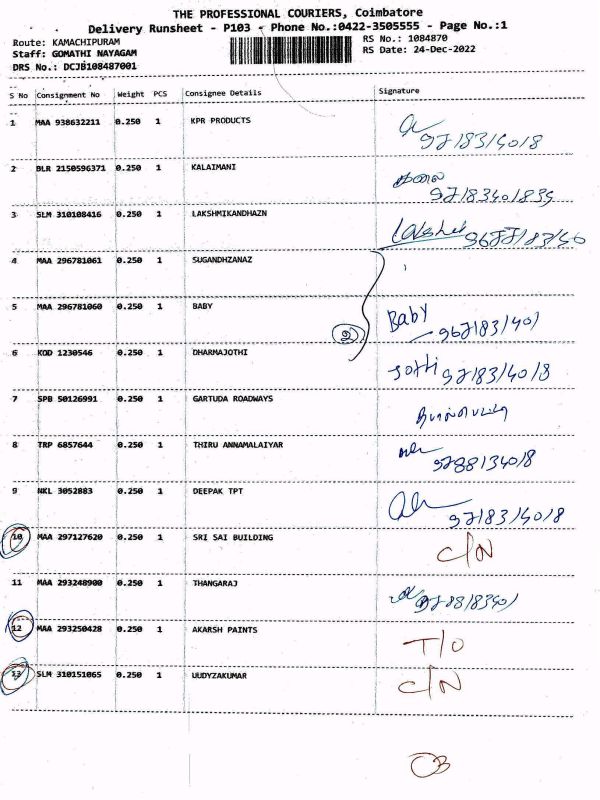 THE PROFESSIONAL COURIERS, Coimbatore
Delivery Runsheet - P103 - Phone No.:0422-3505555 - Page No.:1
Route: KAMACHIPURAM RS No.: 1084870
Staff: GOMATHI NAYAGAM RS Date: 24-Dec-2022
DRS No.: DCJB108487001
S No Consignment No Weight PCS Consignee Details Signature
1 MAA 938632211 0.250 1 KPR PRODUCTS
2 BLR 2150596371 0.250 1 KALAIMANI
3 SLM 310108416 0.250 1 LAKSHMIKANDHAZN
4 MAA 296781061 0.250 1 SUGANDHZANAZ
5 MAA 296781060 0.250 1 BABY Baby
2
6 KOD 1230546 0.250 1 DHARMAJOTHI
7 SPB 50126991 0.250 1 GARTUDA ROADWAYS
8 TRP 6857644 0.250 1 THIRU ANNAMALAIYAR
9 NKL 3052883 0.250 1 DEEPAK TPT
10 MAA 297127620 0.250 1 SRI SAI BUILDING C/N
11 MAA 293248900 0.250 1 THANGARAJ
12 MAA 293250428 0.250 1 AKARSH PAINTS T/O
13 SLM 310151065 0.250 1 UUDYZAKUMAR C/N
03